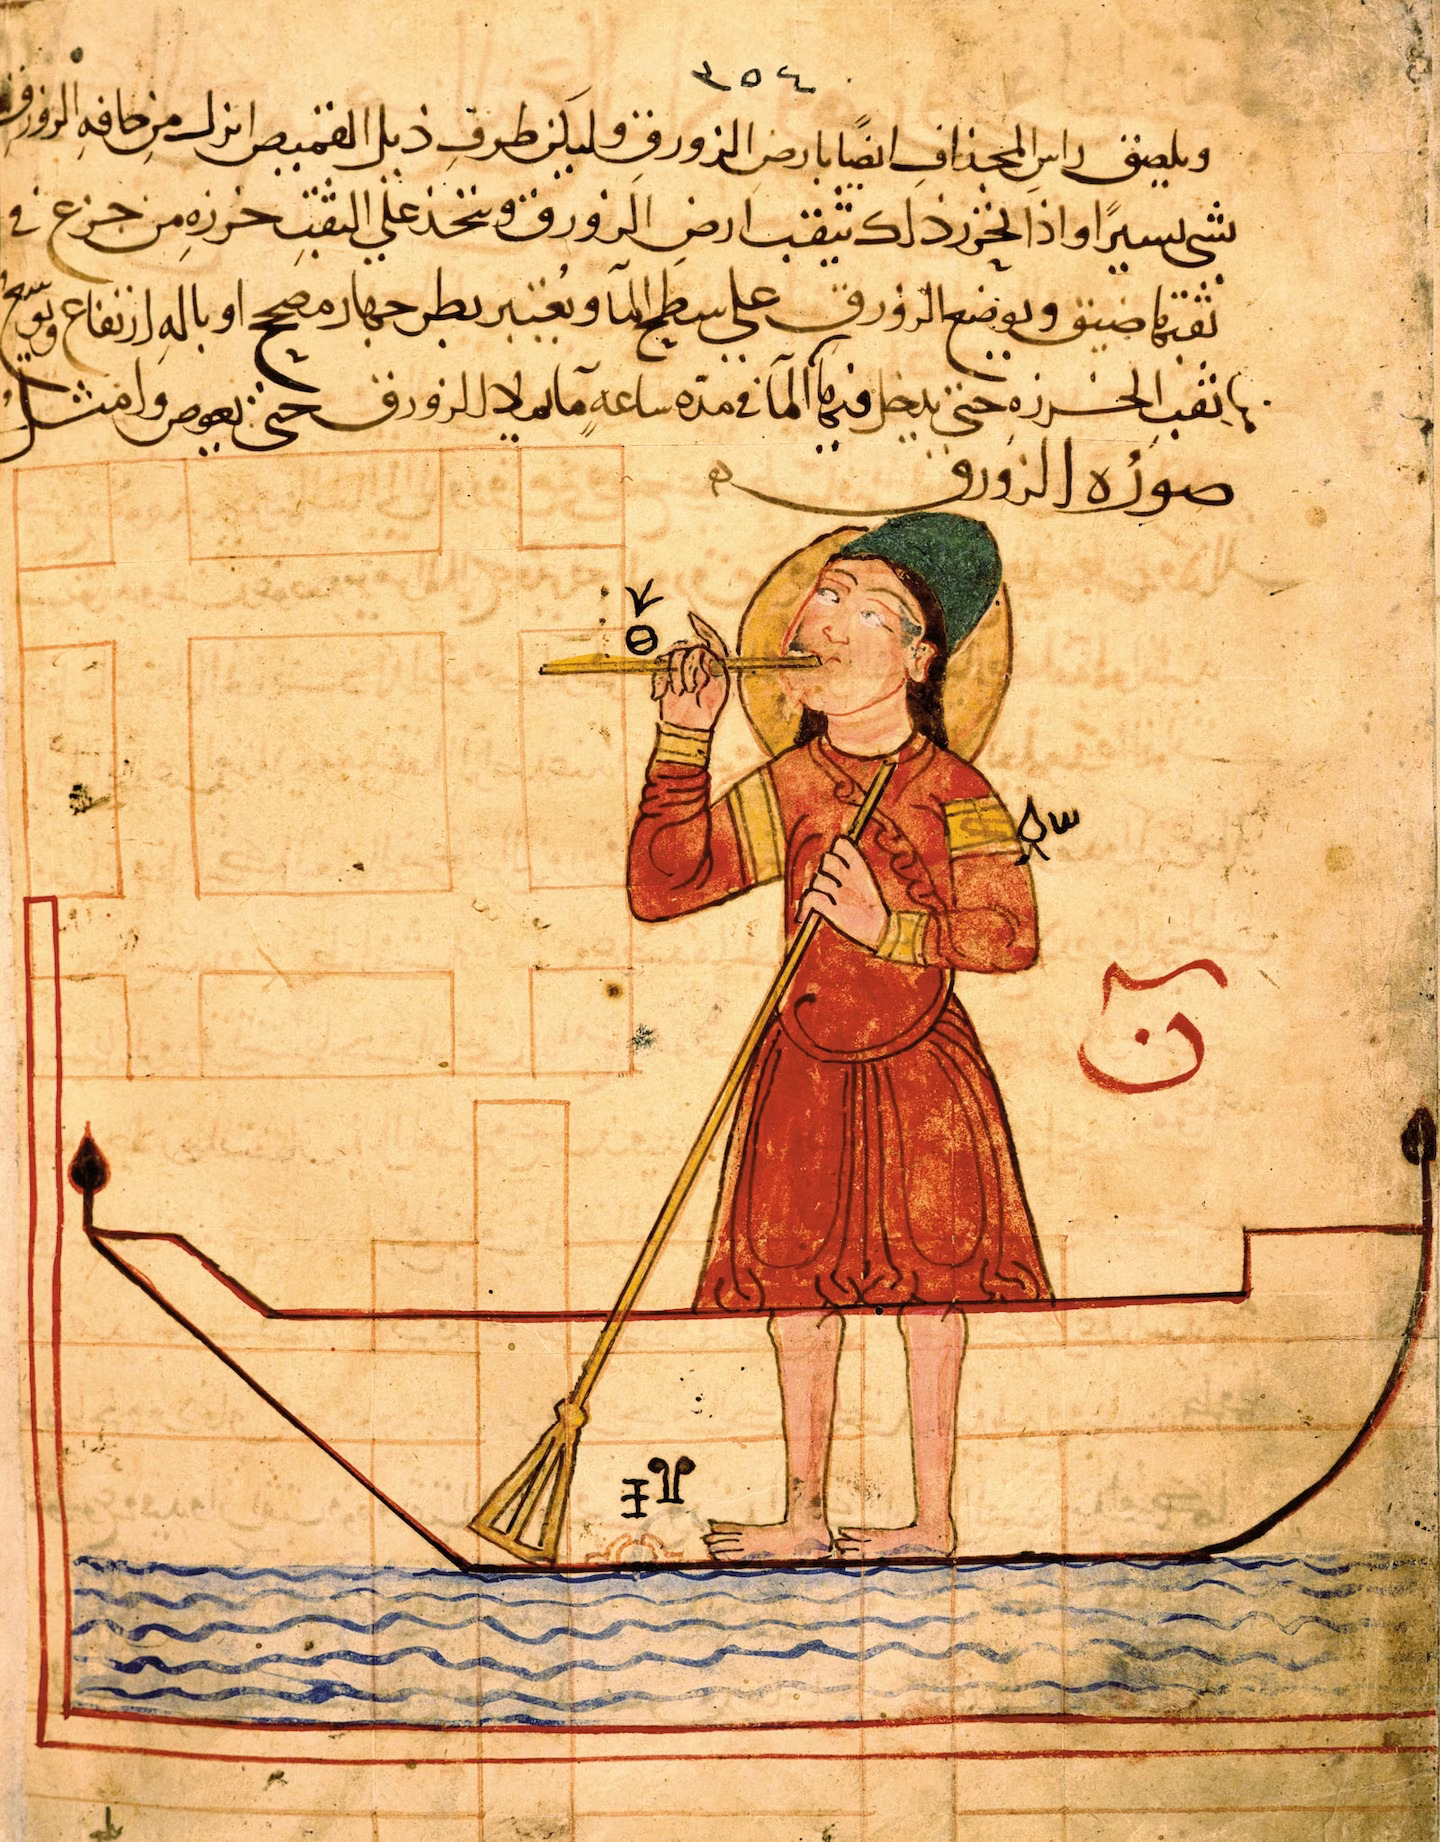 ٣٥٤
ويلصق راس المجذاف ايضًا بارض الزورق وليكن طرف ذيل القميص انزل من حافه الزورق
بشى يسيرًا واذا نجز ذلك تثقب ارض الزورق ويتخذ على الثقب خرزه من جزع فى
ثقبها ضيق ويوضع الزورق على سطح المآ ويُعتبر بطرجهار مصحح او باله ارتفاع ويوسع
بها ثقب الخرزه حتى يدخل فيها المآ فى مدّه ساعهٍ مآ يملا الزورق حتى يغوص وامثل
صورُه الزورق